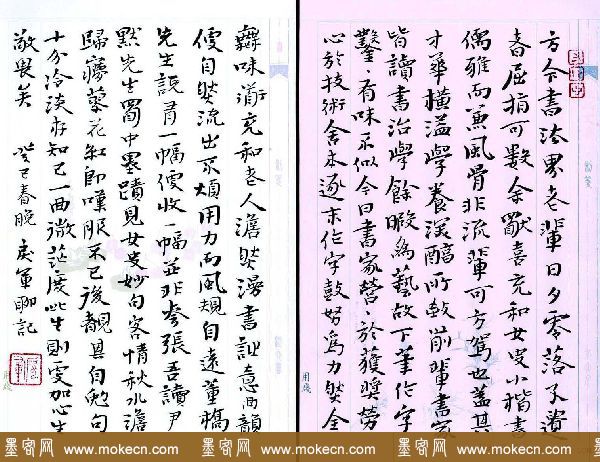 方今書法界老輩日夕零落孑遺
者屈指可數余喜充和女史小楷書
儒雅而兼風骨非流輩可方駕也蓋其
才華橫溢學養深醇所致前輩書家
皆讀書治學餘暇為藝故下筆作字
有味不似今日書家營々於獲獎勞
心於技術舍本逐末作字鼓努為力然全
無味道充和老人澹然漫書詎意間韻
便自然流出不煩用力而風規自遠董橋
先生說看一幅便收一幅並非夸張吾讀尹
默先生蜀中墨蹟見女史妙句客情秋水澹
歸夢蓼花紅即嘆服不已後觀其自勉句
十分冷淡存知己一曲微茫度此生則更加心生
敬畏矣 癸巳春晚 軍聊記
墨客网 墨客网 墨客网
www.mokecn.com www.mokecn.com www.mokecn.com